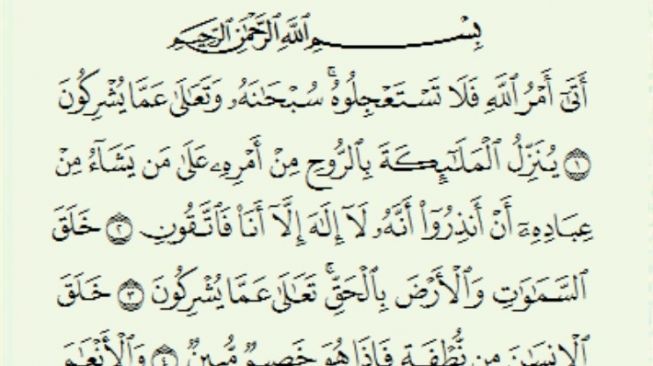 بِسْمِ اللَّهِ الرَّحْمَٰنِ الرَّحِيمِ
أَتَىٰٓ أَمْرُ ٱللَّهِ فَلَا تَسْتَعْجِلُوهُ ۚ سُبْحَٰنَهُۥ وَتَعَٰلَىٰ عَمَّا يُشْرِكُونَ
١ يُنَزِّلُ ٱلْمَلَٰٓئِكَةَ بِٱلرُّوحِ مِنْ أَمْرِهِۦ عَلَىٰ مَن يَشَآءُ مِنْ
عِبَادِهِۦٓ أَنْ أَنذِرُوٓا۟ أَنَّهُۥ لَآ إِلَٰهَ إِلَّآ أَنَا۠ فَٱتَّقُونِ ٢ خَلَقَ
ٱلسَّمَٰوَٰتِ وَٱلْأَرْضَ بِٱلْحَقِّ ۚ تَعَٰلَىٰ عَمَّا يُشْرِكُونَ ٣ خَلَقَ
ٱلْإِنسَٰنَ مِن نُّطْفَةٍ فَإِذَا هُوَ خَصِيمٌ مُّبِينٌ ٤ وَٱلْأَنْعَٰمَ